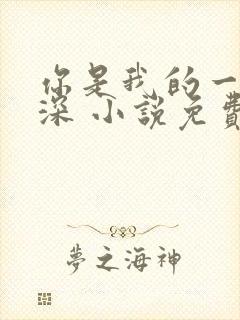 你是我的一
深 小說免費
夢之海神